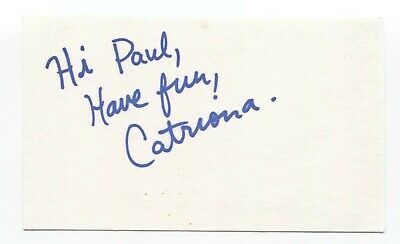 Hi Paul,
Have fun,
Catriona.